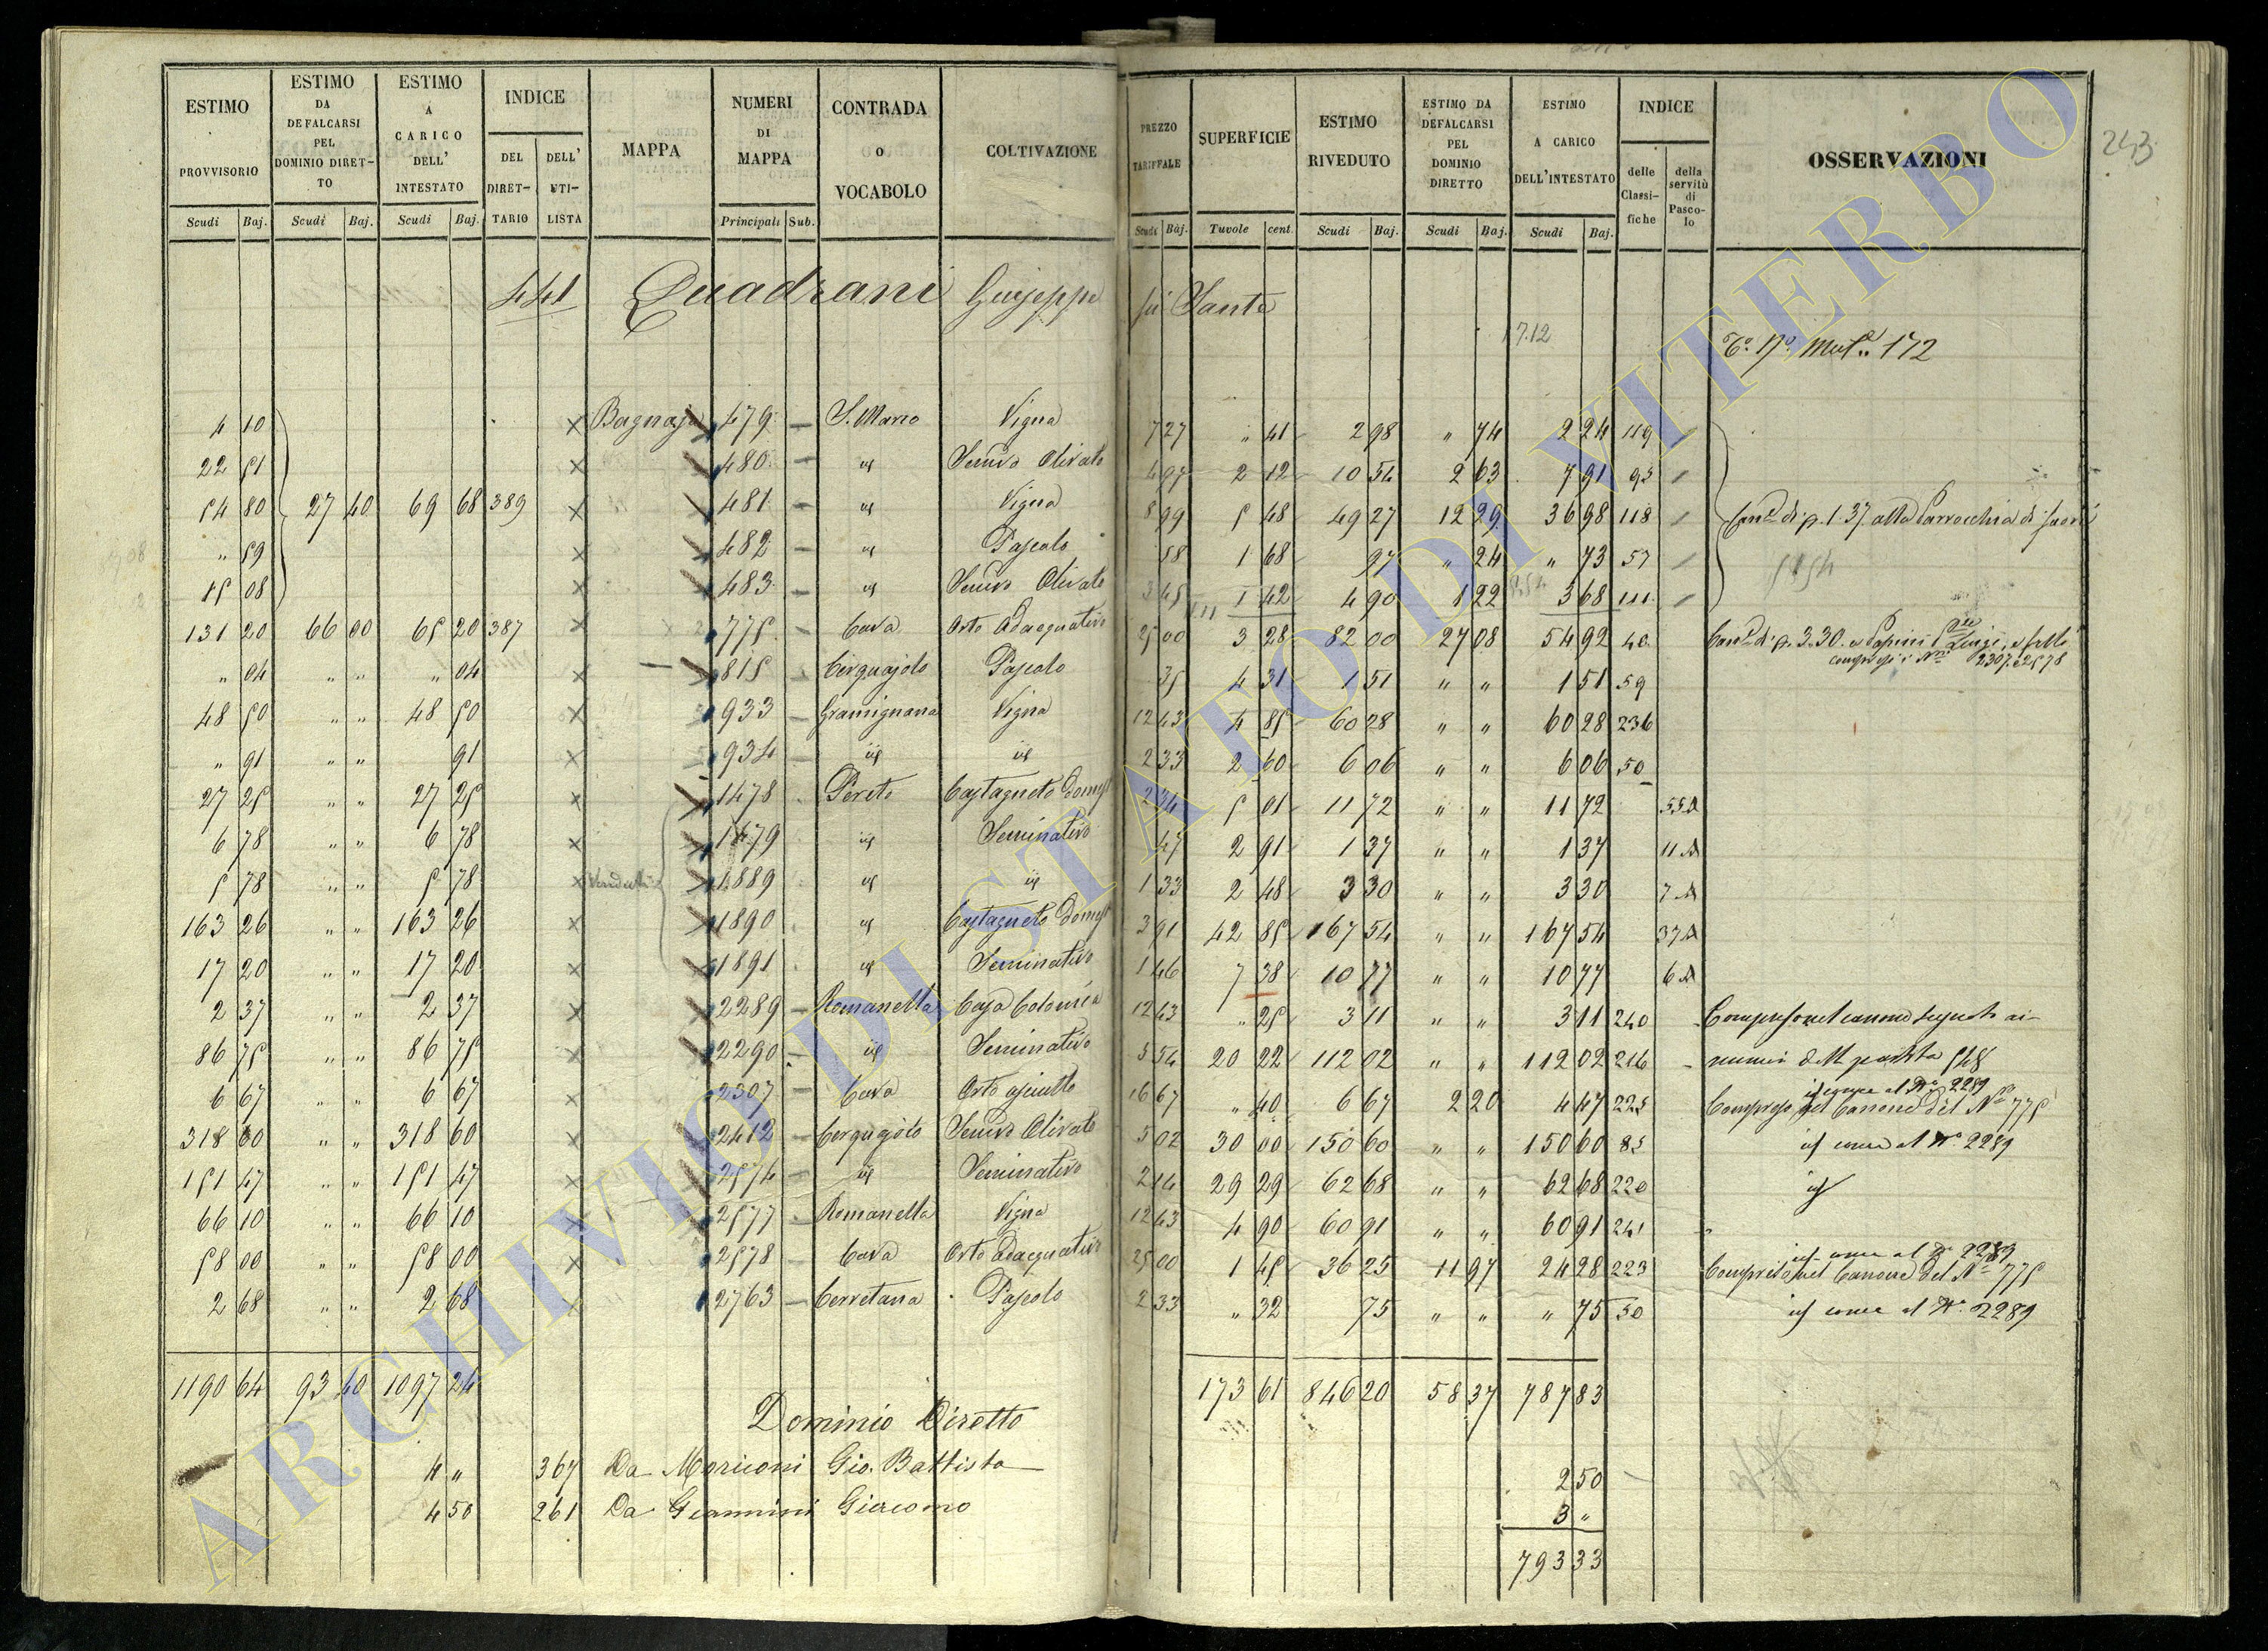 243
ESTIMO PROVVISORIO | ESTIMO DA DEFALCARSI PEL DOMINIO DIRET-TO | ESTIMO A CARICO DELL' INTESTATO | INDICE DEL DIRET-TARIO | DELL' UTI-LISTA | MAPPA | NUMERI DI MAPPA | CONTRADA O VOCABOLO | COLTIVAZIONE | PREZZO TARIFFALE | SUPERFICIE | ESTIMO RIVEDUTO | ESTIMO DA DEFALCARSI PEL DOMINIO DIRETTO | ESTIMO A CARICO DELL'INTESTATO | INDICE delle Classi-fiche | della servitù di Pasco-lo | OSSERVAZIONI
Scudi | Baj. | Scudi | Baj. | Scudi | Baj. | Principali | Sub. | Scudi | Baj. | Tavole | cent. | Scudi | Baj. | Scudi | Baj. | Scudi | Baj.
441 Quadrani Giuseppe fu Sante
7.12
172
4 10 | × | Bagnaja | 479 | S. Marco | Vigna | 7 27 | " 41 | 2 98 | " 74 | 2 24 | 119
22 51 | × | 480 | id | Semvo Olivato | 4 97 | 2 12 | 10 54 | 2 63 | 7 91 | 95
54 80 | 27 40 | 69 68 | 389 | × | 481 | id | Vigna | 8 99 | 5 48 | 49 27 | 12 29 | 36 98 | 118 | di p. 1.37 alla Parrocchia di
" 59 | × | 482 | id | Pascolo | 58 | 1 68 | 97 | " 24 | " 73 | 57
15 08 | × | 483 | id | Semvo Olivato | 3 45 | 1 42 | 4 90 | 1 22 | 3 68 | 111
131 20 | 66 00 | 65 20 | 387 | × | 775 | Cava | Orto Adacquativo | 25 00 | 3 28 | 82 00 | 27 08 | 54 92 | 40 | di p. 3.30. a Papini Luigi, e
2307. 2578
" 04 | " " | " 04 | 815 | Cerquajolo | Pascolo | 35 | 4 31 | 1 51 | " " | 1 51 | 59
48 50 | " " | 48 50 | × | 933 | Gramignana | Vigna | 12 43 | 4 85 | 60 28 | " " | 60 28 | 236
" 91 | " " | 91 | × | 934 | id | id | 2 33 | 2 60 | 6 06 | " " | 6 06 | 50
27 25 | " " | 27 25 | × | 1478 | Poreto | Castagneto Domest | 2 34 | 5 01 | 11 72 | " " | 11 72 | 55 A
6 78 | " " | 6 78 | × | 1479 | id | Seminativo | 47 | 2 91 | 1 37 | " " | 1 37 | 11 A
5 78 | " " | 5 78 | × | 1889 | id | id | 1 33 | 2 48 | 3 30 | " " | 3 30 | 7 A
163 26 | " " | 163 26 | × | 1890 | id | Castagneto Domest | 3 91 | 42 85 | 167 54 | " " | 167 54 | 37 A
17 20 | " " | 17 20 | × | 1891 | id | Seminativo | 1 46 | 7 38 | 10 77 | " " | 10 77 | 6 A
2 37 | " " | 2 37 | × | 2289 | Romanella | Casa Colonica | 12 43 | " 25 | 3 11 | " " | 3 11 | 240 | Compreso nel canone segnato ai
86 75 | " " | 86 75 | × | 2290 | id | Seminativo | 5 54 | 20 22 | 112 02 | " " | 112 02 | 216 | numeri della partita 548
id come al No 2289
6 67 | " " | 6 67 | × | 2307 | Cava | Orto asciutto | 16 67 | " 40 | 6 67 | 2 20 | 4 47 | 225 | Compreso nel Canone del No 775
318 60 | " " | 318 60 | × | 2412 | Cerquajolo | Semvo Olivato | 5 02 | 30 00 | 150 60 | " " | 150 60 | 85 | id come al No 2289
151 47 | " " | 151 47 | × | 2574 | id | Seminativo | 2 14 | 29 29 | 62 68 | " " | 62 68 | 220 | id
66 10 | " " | 66 10 | × | 2577 | Romanella | Vigna | 12 43 | 4 90 | 60 91 | " " | 60 91 | 241
id come al No 2289
58 00 | " " | 58 00 | × | 2578 | Cava | Orto Adacquativo | 25 00 | 1 45 | 36 25 | 11 97 | 24 28 | 223 | Compreso nel Canone del No 775
2 68 | " " | 2 68 | × | 2763 | Cerretana | Pascolo | 2 33 | " 32 | 75 | " " | " 75 | 50 | id come al No 2289
1190 64 | 93 40 | 1097 24 | 173 61 | 846 20 | 58 37 | 787 83
Dominio Diretto
4 " | 367 | Da Moriconi Gio. Battista | 2 50
4 50 | 261 | Da Giannini Giacomo | 3 "
793 33
ARCHIVIO DI STATO DI VITERBO